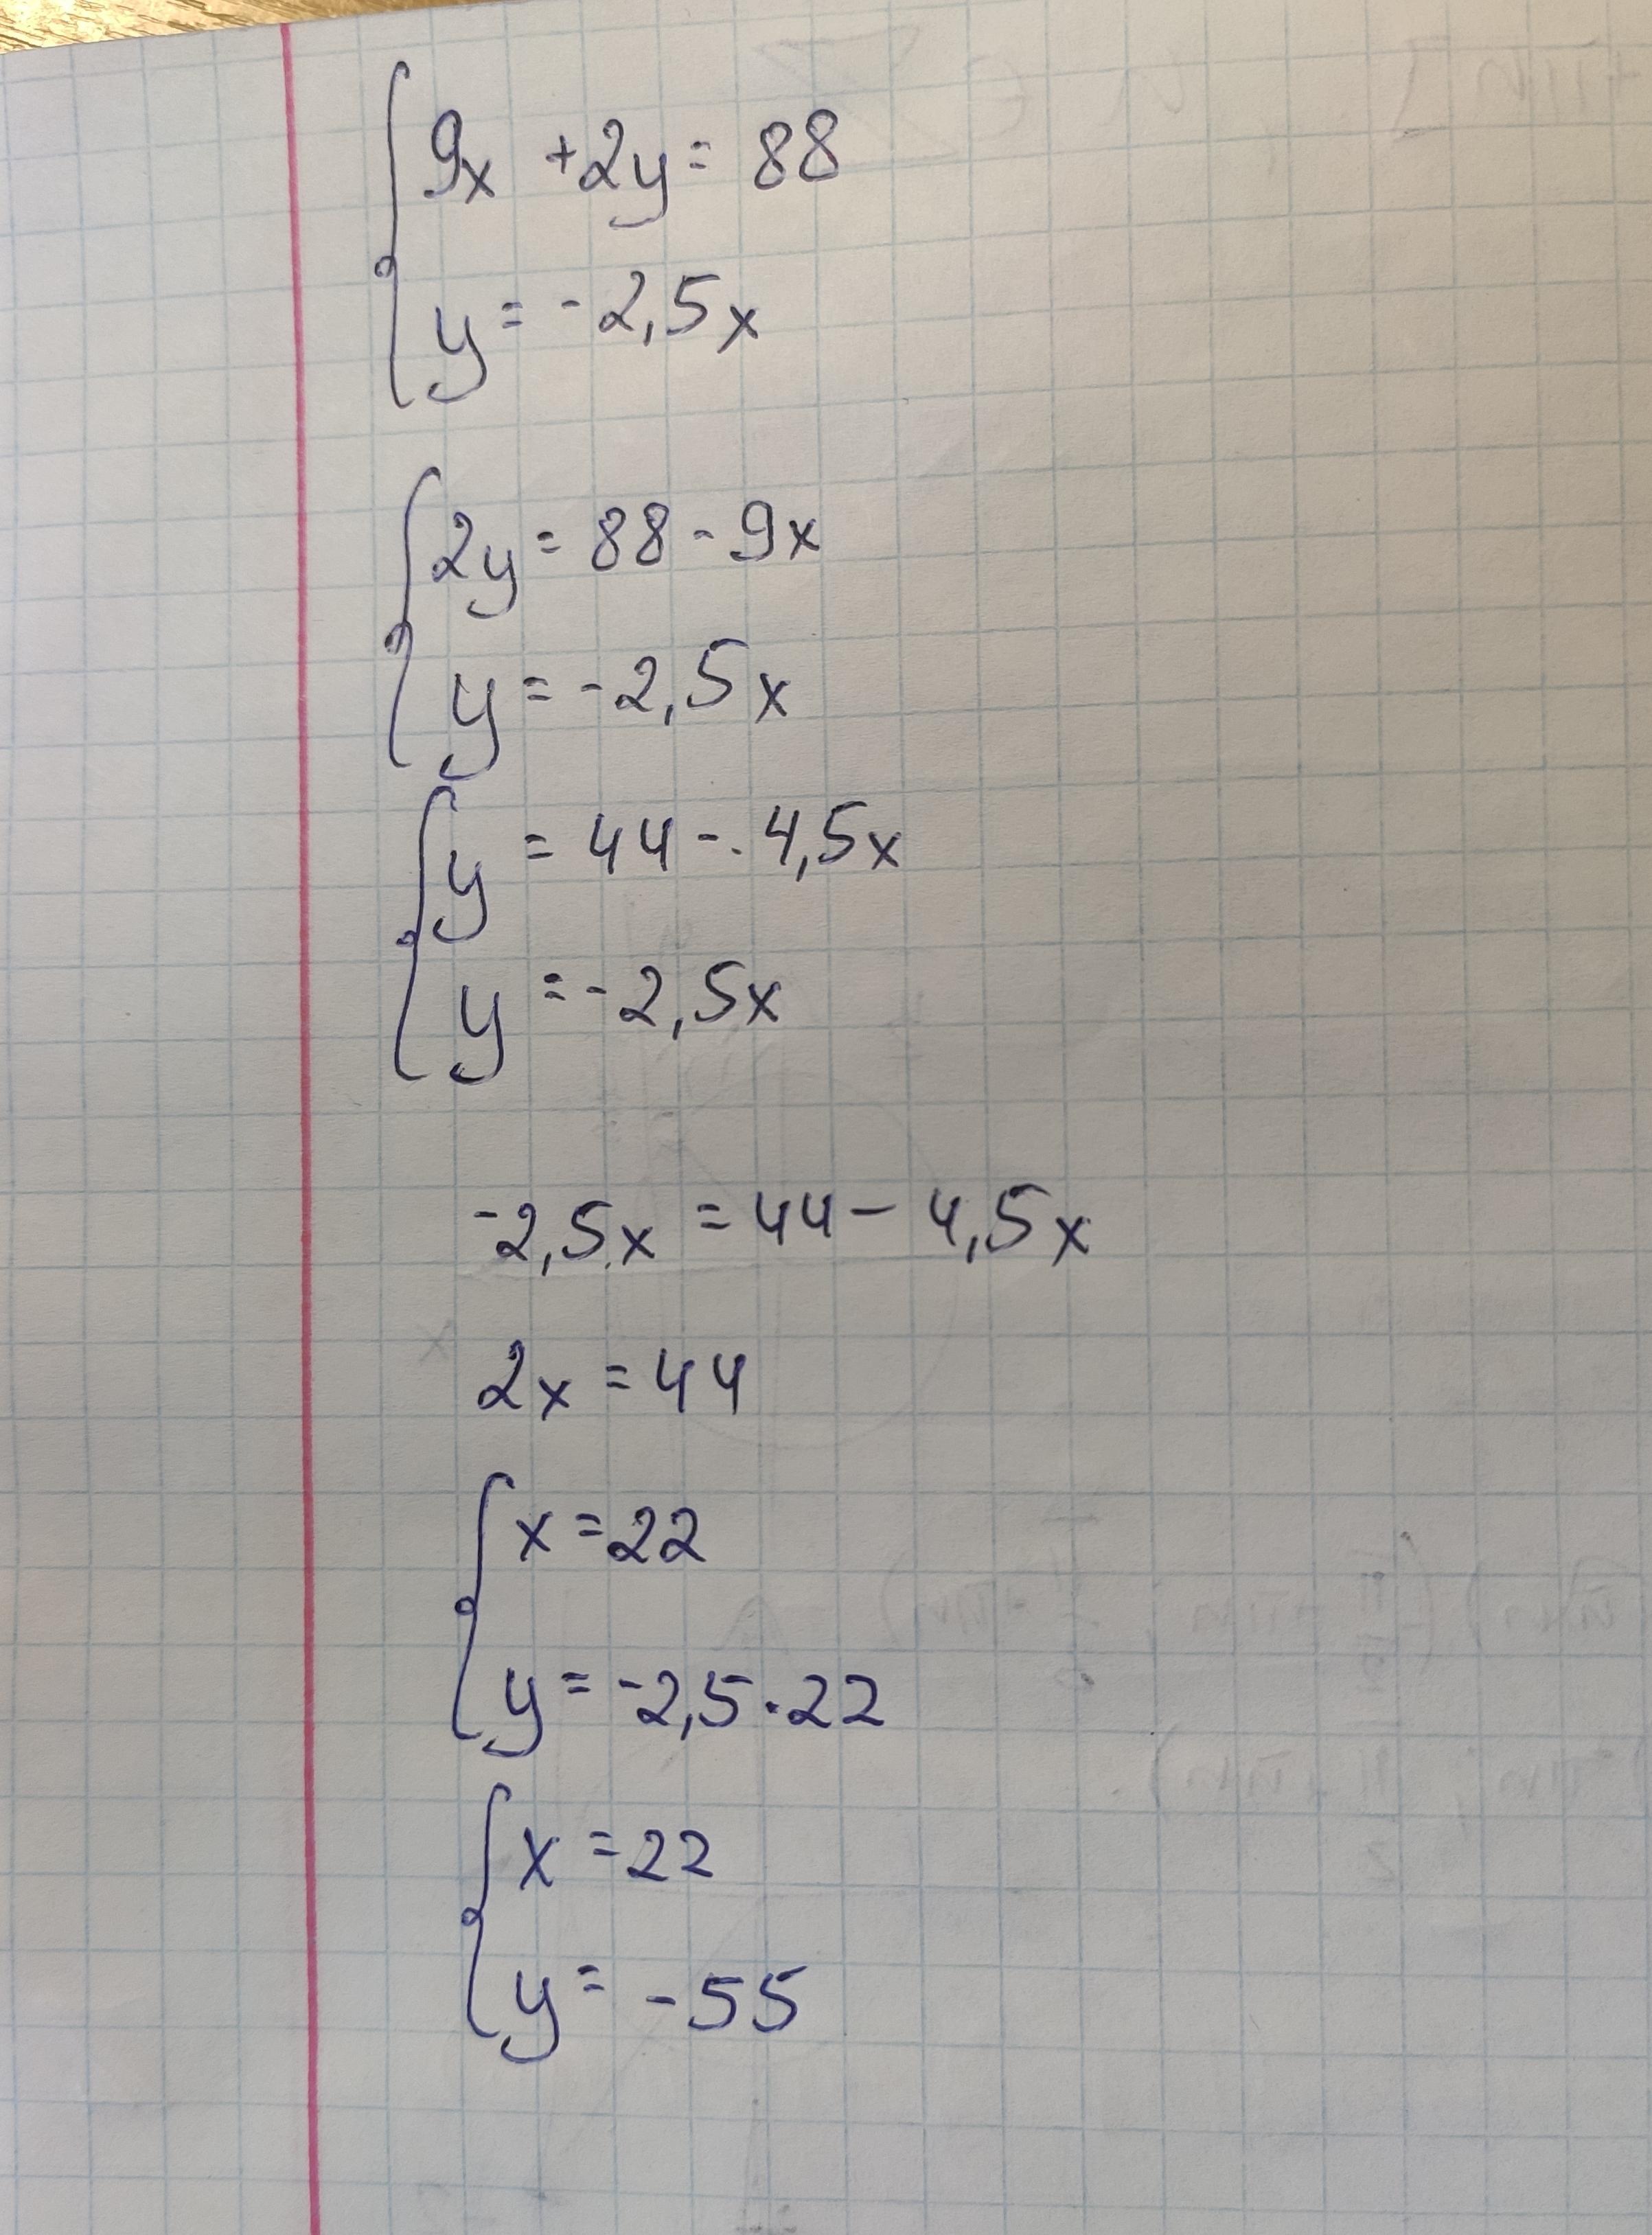 9x +2y = 88
y = -2,5x
2y = 88 - 9x
y = -2,5x
y = 44 - 4,5x
y = -2,5x
-2,5x = 44 - 4,5x
2x = 44
x = 22
y = -2,5·22
x = 22
y = -55